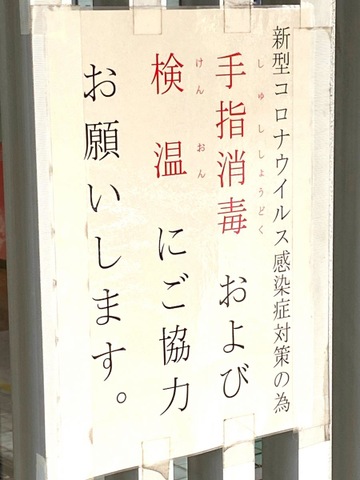 新型コロナウイルス感染症対策の為
手指消毒および
しゅししょうどく
検温にご協力
けんおん
お願いします。